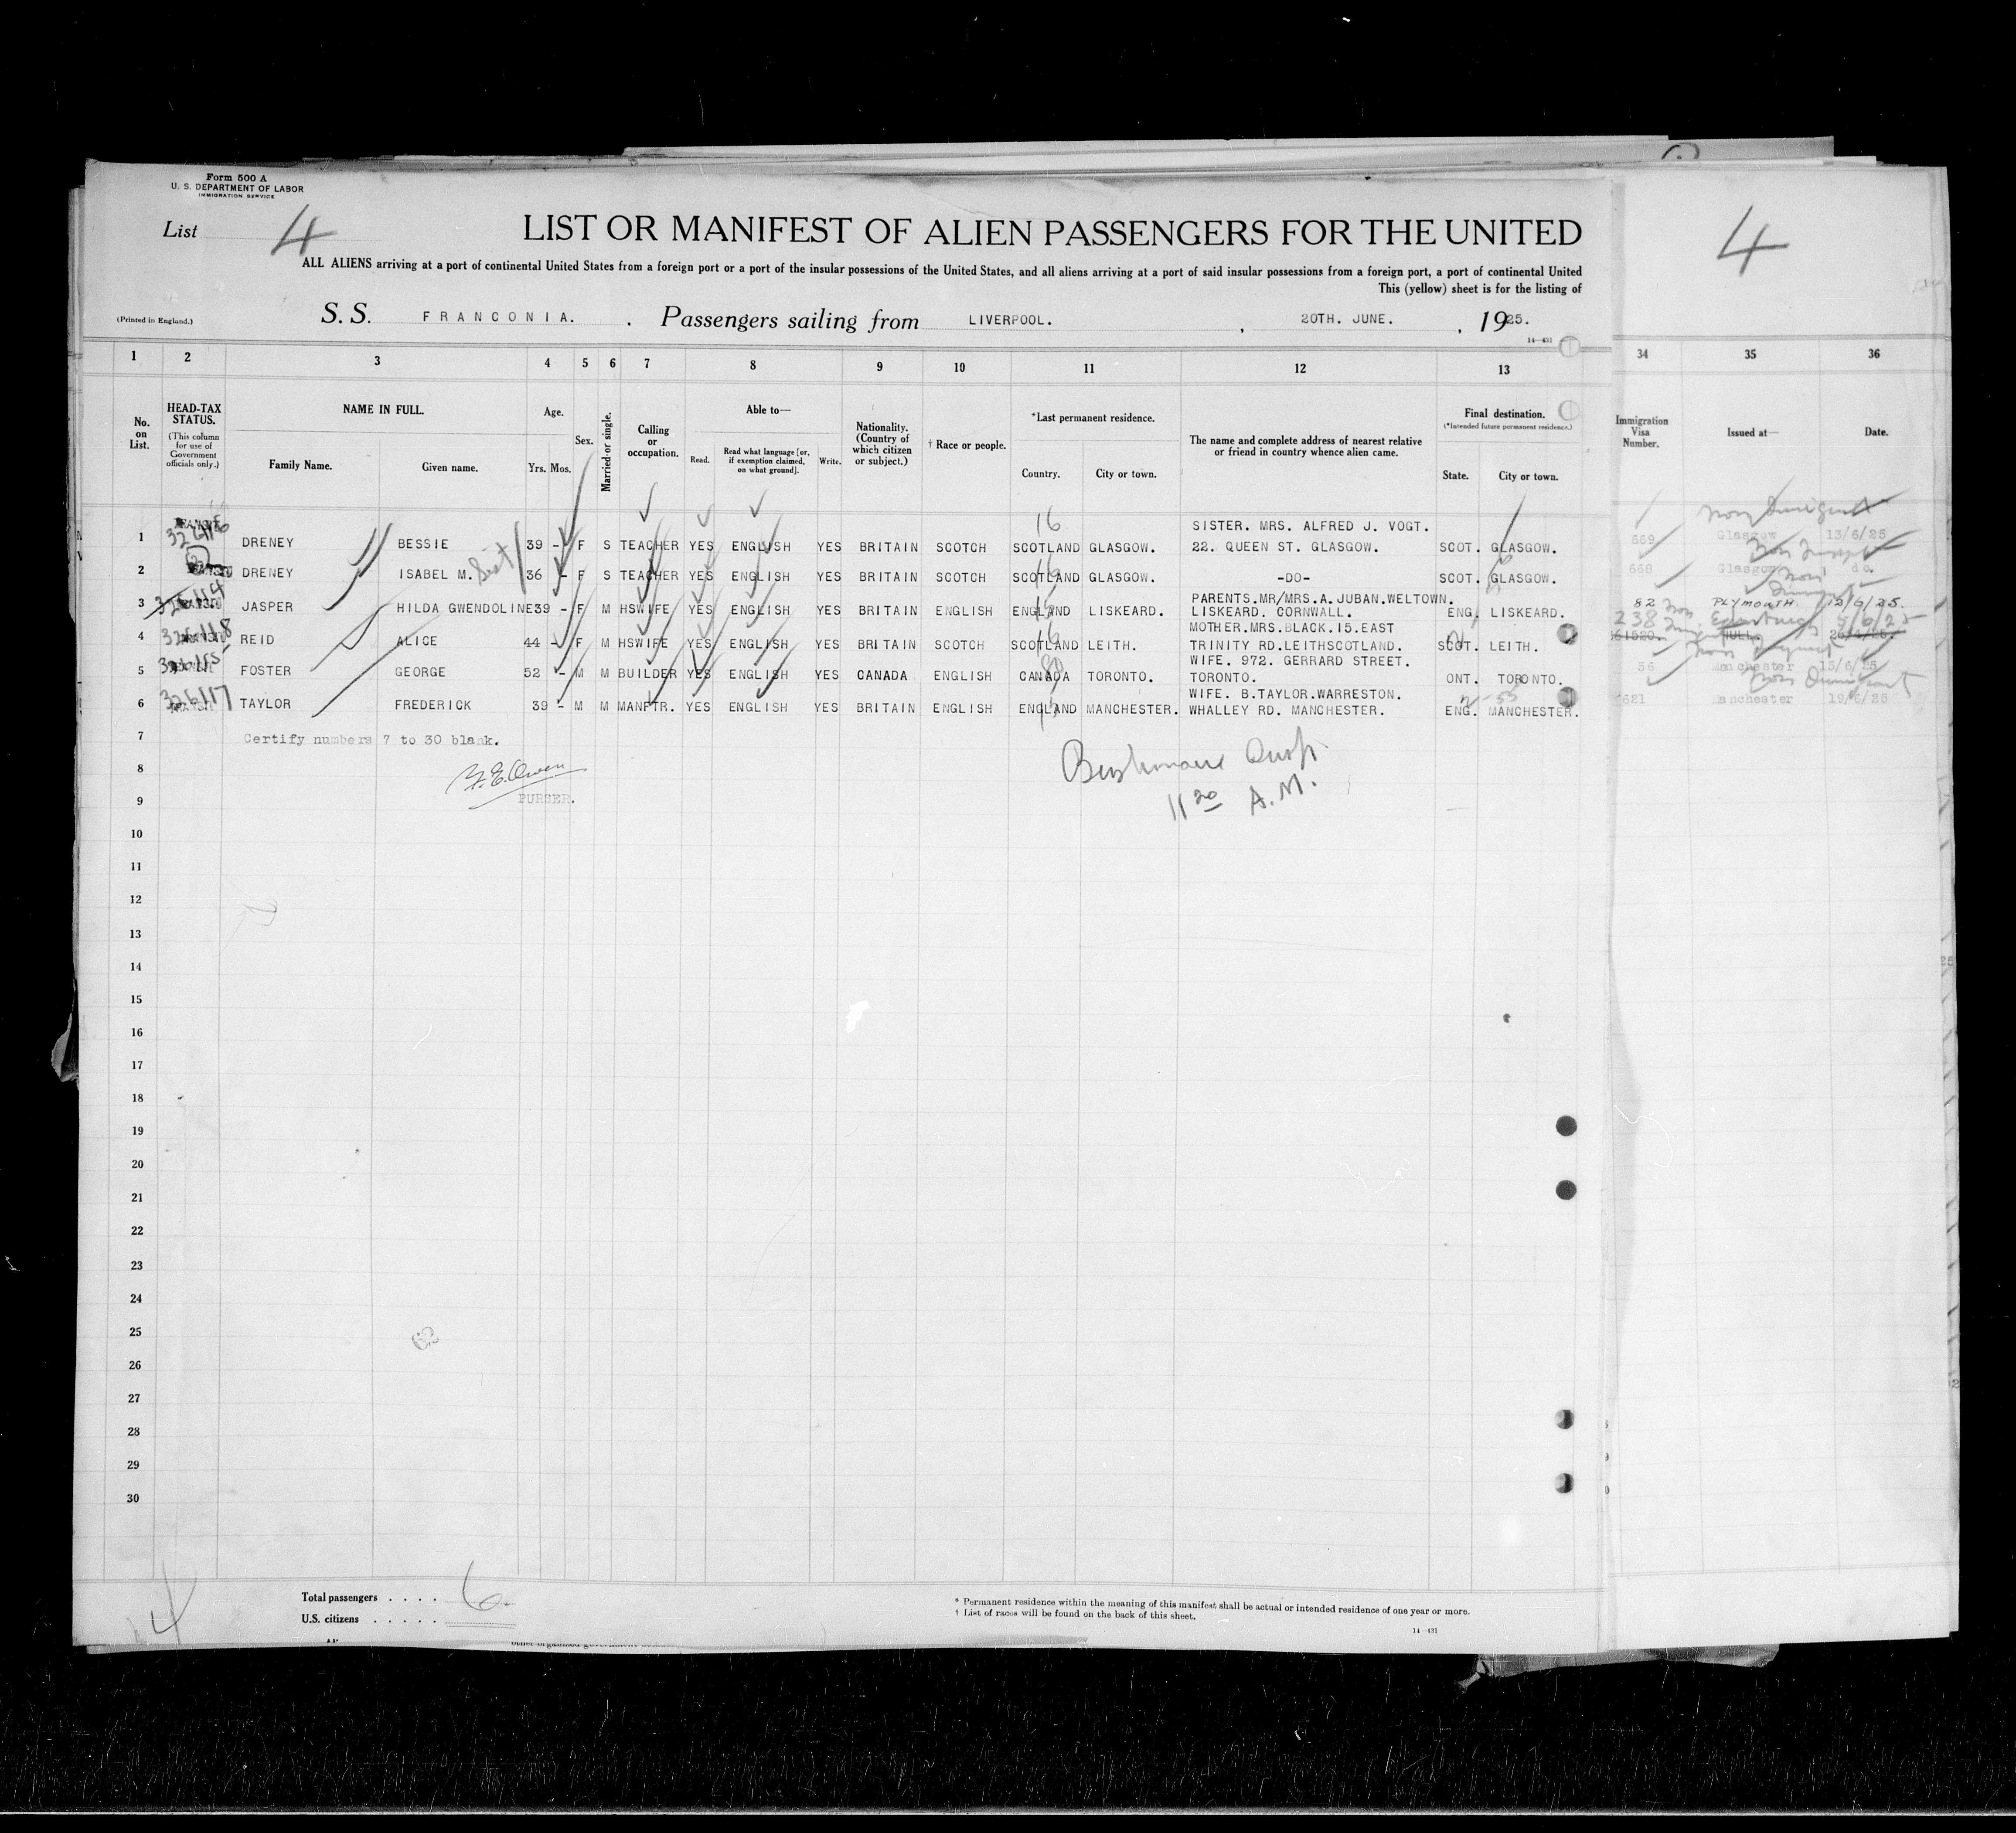 Form 500 A
U. S. DEPARTMENT OF LABOR
IMMIGRATION SERVICE
List 4
LIST OR MANIFEST OF ALIEN PASSENGERS FOR THE UNITED
4
ALL ALIENS arriving at a port of continental United States from a foreign port or a port of the insular possessions of the United States, and all aliens arriving at a port of said insular possessions from a foreign port, a port of continental United
This (yellow) sheet is for the listing of
(Printed in England.)
S. S. FRANCONIA. , Passengers sailing from LIVERPOOL. , 20TH. JUNE. , 1925.
14-431
1 2 3 4 5 6 7 8 9 10 11 12 13 34 35 36
No. on List.
HEAD-TAX STATUS.
(This column for use of Government officials only.)
NAME IN FULL.
Family Name. Given name.
Age.
Yrs. Mos.
Sex.
Married or single.
Calling or occupation.
Able to—
Read. Read what language [or, if exemption claimed, on what ground]. Write.
Nationality. (Country of which citizen or subject.)
† Race or people.
*Last permanent residence.
Country. City or town.
The name and complete address of nearest relative or friend in country whence alien came.
Final destination.
(*Intended future permanent residence.)
State. City or town.
Immigration Visa Number.
Issued at—
Date.
16 SISTER. MRS. ALFRED J. VOGT.
1 DRENEY BESSIE 39 - F S TEACHER YES ENGLISH YES BRITAIN SCOTCH SCOTLAND GLASGOW. 22. QUEEN ST. GLASGOW. SCOT. GLASGOW. 669 Glasgow 13/6/25
2 DRENEY ISABEL M. Sist 36 - F S TEACHER YES ENGLISH YES BRITAIN SCOTCH SCOTLAND GLASGOW. -DO- SCOT. GLASGOW. 668 Glasgow do.
PARENTS.MR/MRS.A.JUBAN.WELTOWN.
3 JASPER HILDA GWENDOLINE 39 - F M HSWIFE YES ENGLISH YES BRITAIN ENGLISH ENGLAND LISKEARD. LISKEARD. CORNWALL. ENG. LISKEARD. 82 PLYMOUTH. 12/6/25.
MOTHER.MRS.BLACK.15.EAST 238 5/6/25
4 REID ALICE 44 - F M HSWIFE YES ENGLISH YES BRITAIN SCOTCH SCOTLAND LEITH. TRINITY RD.LEITHSCOTLAND. SCOT. LEITH. HULL.
WIFE. 972. GERRARD STREET.
5 FOSTER GEORGE 52 - M M BUILDER YES ENGLISH YES CANADA ENGLISH CANADA TORONTO. TORONTO. ONT. TORONTO. 56 Manchester 15/6/25
WIFE. B.TAYLOR.WARRESTON.
6 326117 TAYLOR FREDERICK 39 - M M MANFTR. YES ENGLISH YES BRITAIN ENGLISH ENGLAND MANCHESTER. WHALLEY RD. MANCHESTER. ENG. MANCHESTER. 621 Manchester 19/6/25
7 Certify numbers 7 to 30 blank.
8
PURSER.
9 11 20 A.M.
10
11
12
13
14
15
16
17
18
19
20
21
22
23
24
25
26
27
28
29
30
Total passengers . . . . 6
U.S. citizens . . . . .
* Permanent residence within the meaning of this manifest shall be actual or intended residence of one year or more.
† List of races will be found on the back of this sheet.
14-431
4